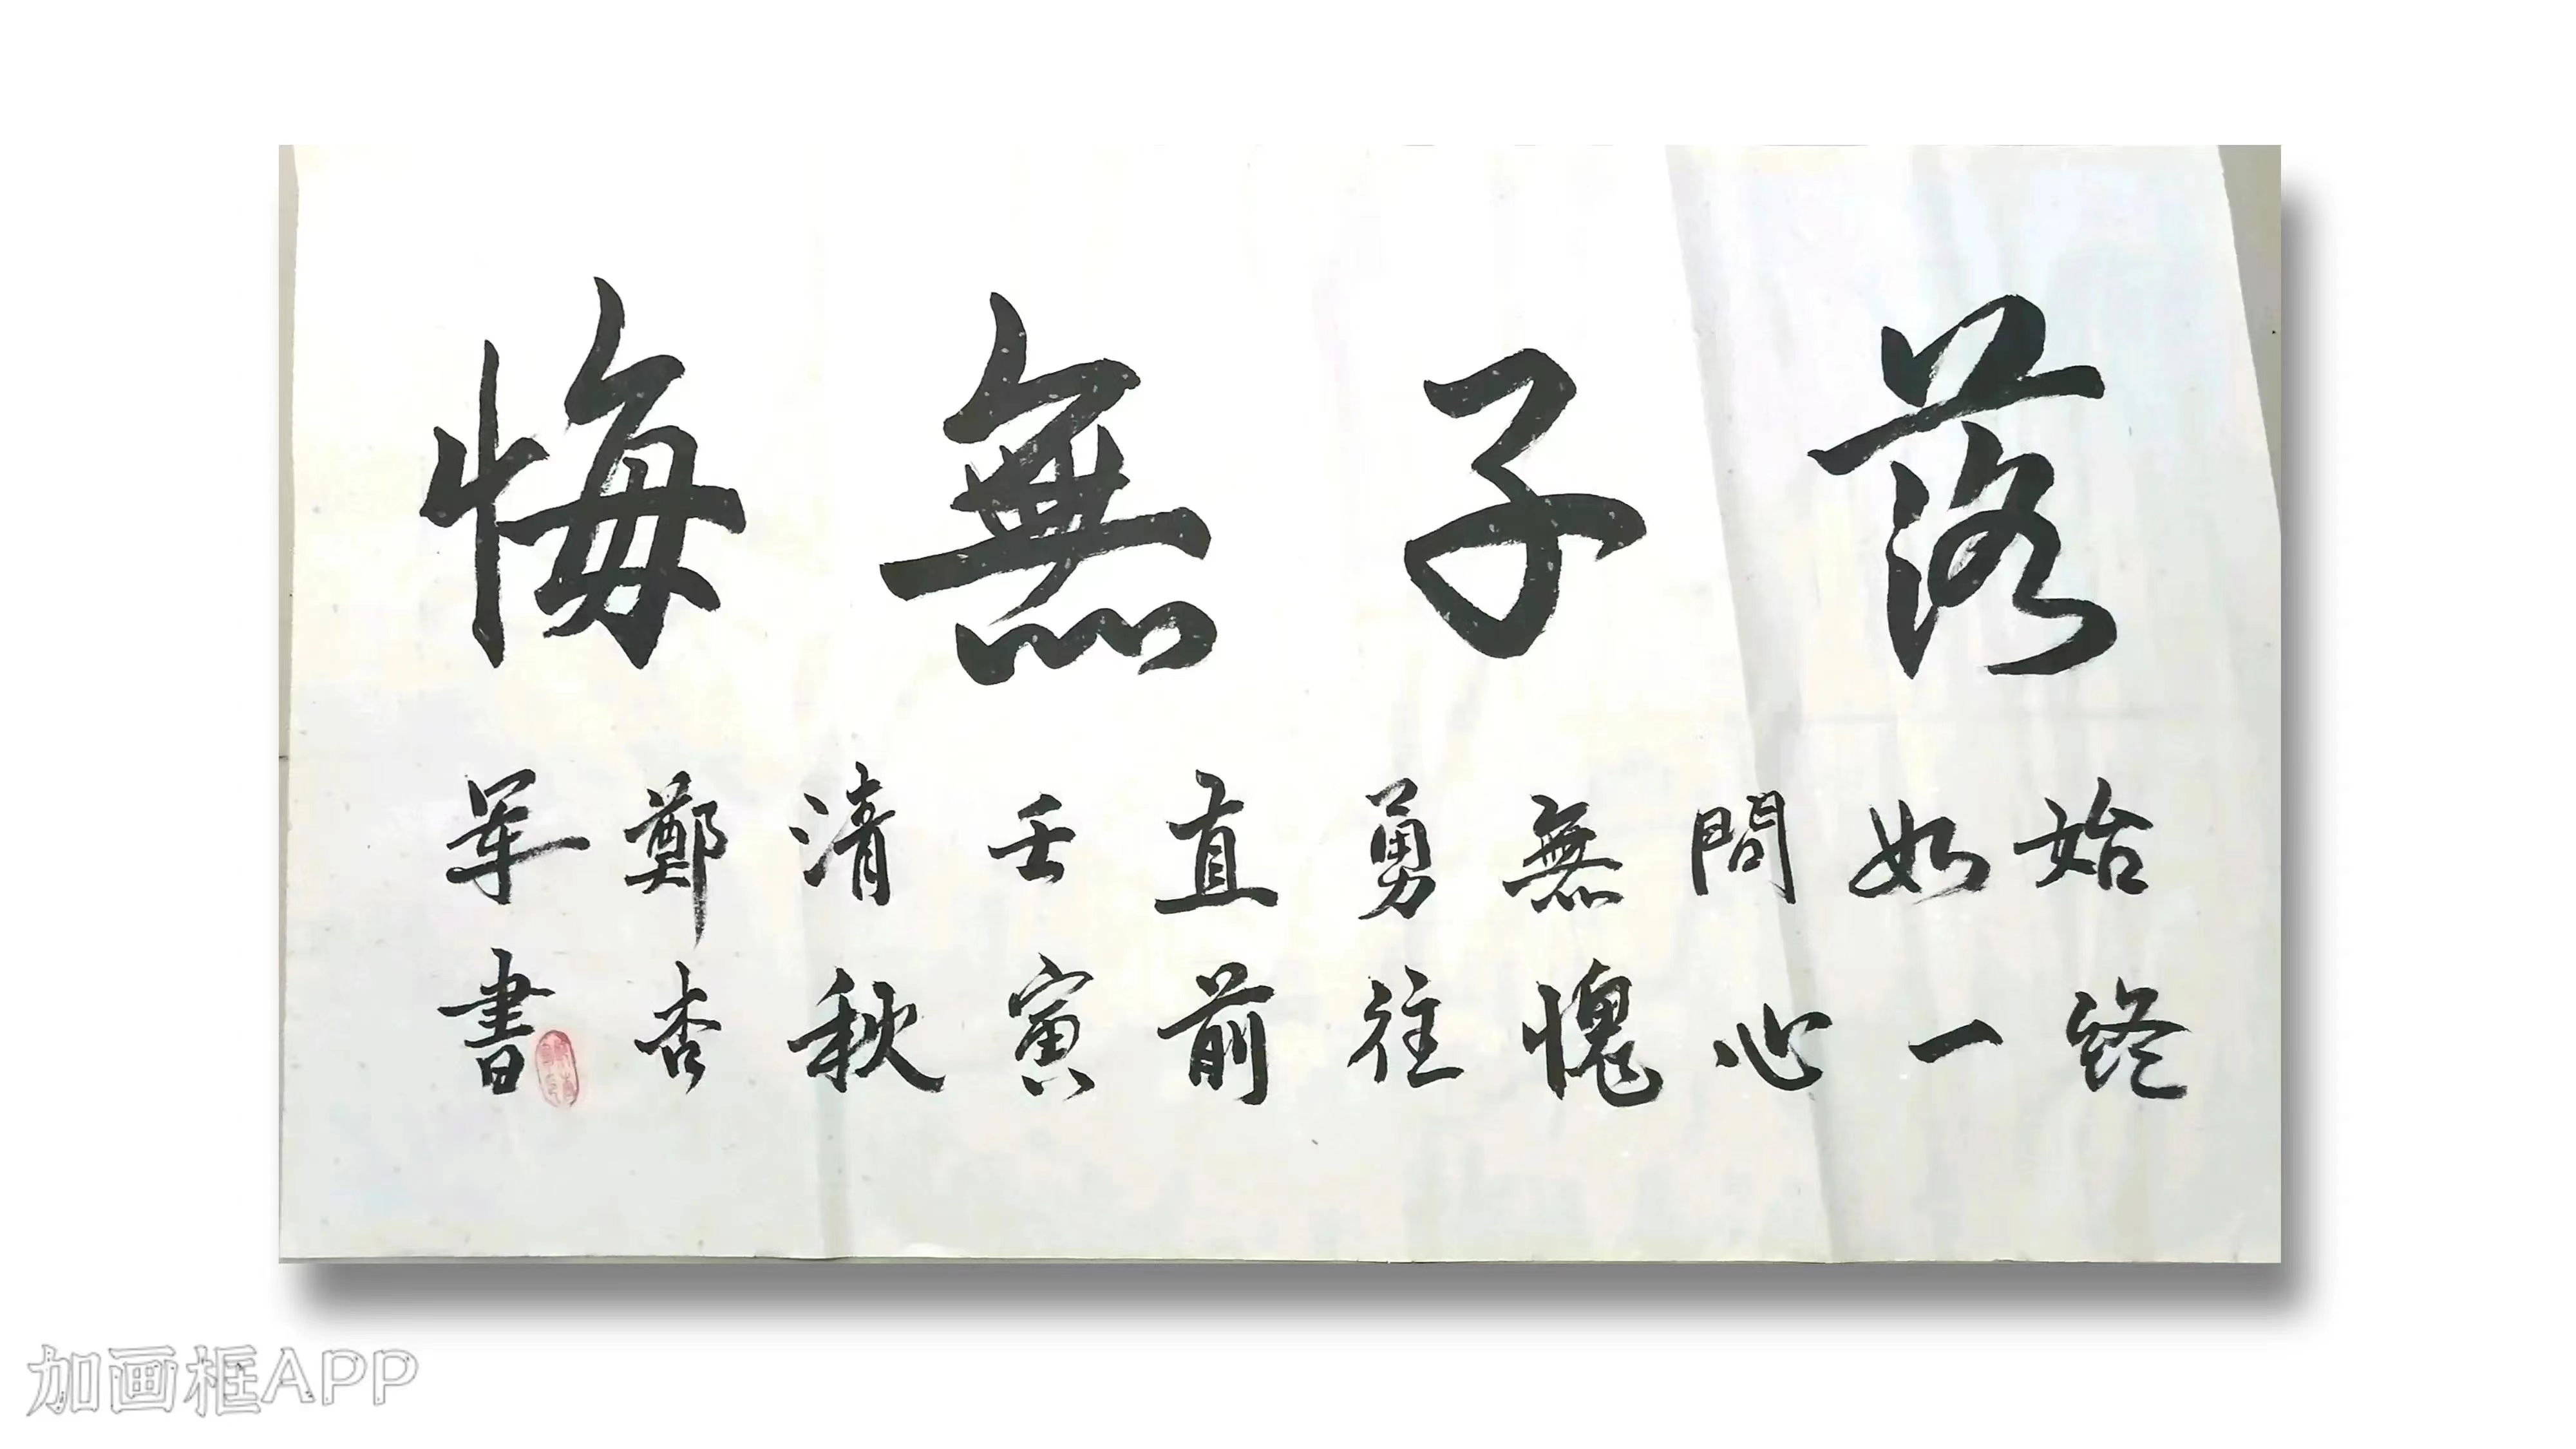 落子無悔
始終
如一
問心
無愧
勇往
直前
壬寅
清秋
鄭杏
军書
加画框APP